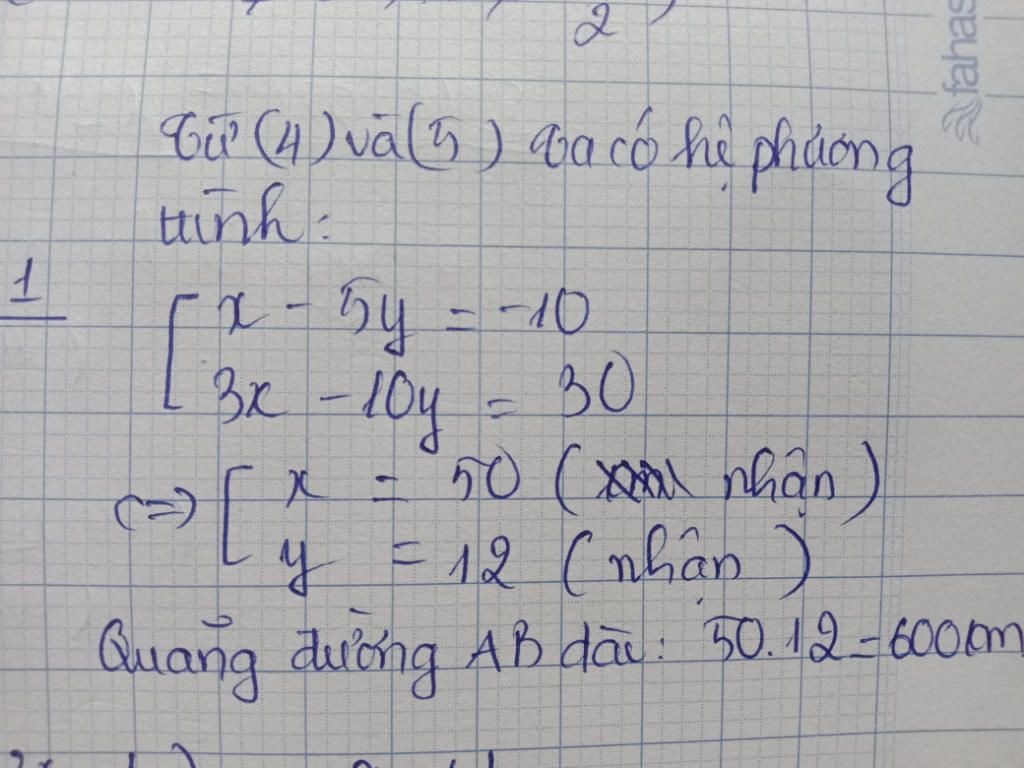 2
fahas
Từ (4) và (5) Ta có hệ phương
trình:
1
[ x - 5y = -10
3x - 10y = 30
<=> [ x = 50 ( nhận )
y = 12 ( nhận )
Quãng đường AB dài: 50.12 = 600cm